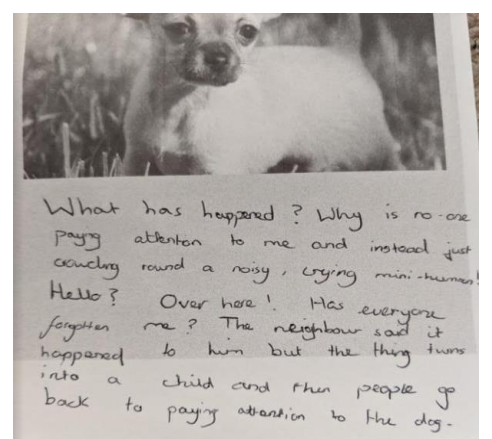 What has happened? Why is no-one
paying attention to me and instead just
crowding round a noisy, crying mini-human!
Hello? Over here! Has everyone
forgotten me? The neighbour said it
happened to him but the thing turns
into a child and then people go
back to paying attention to the dog.